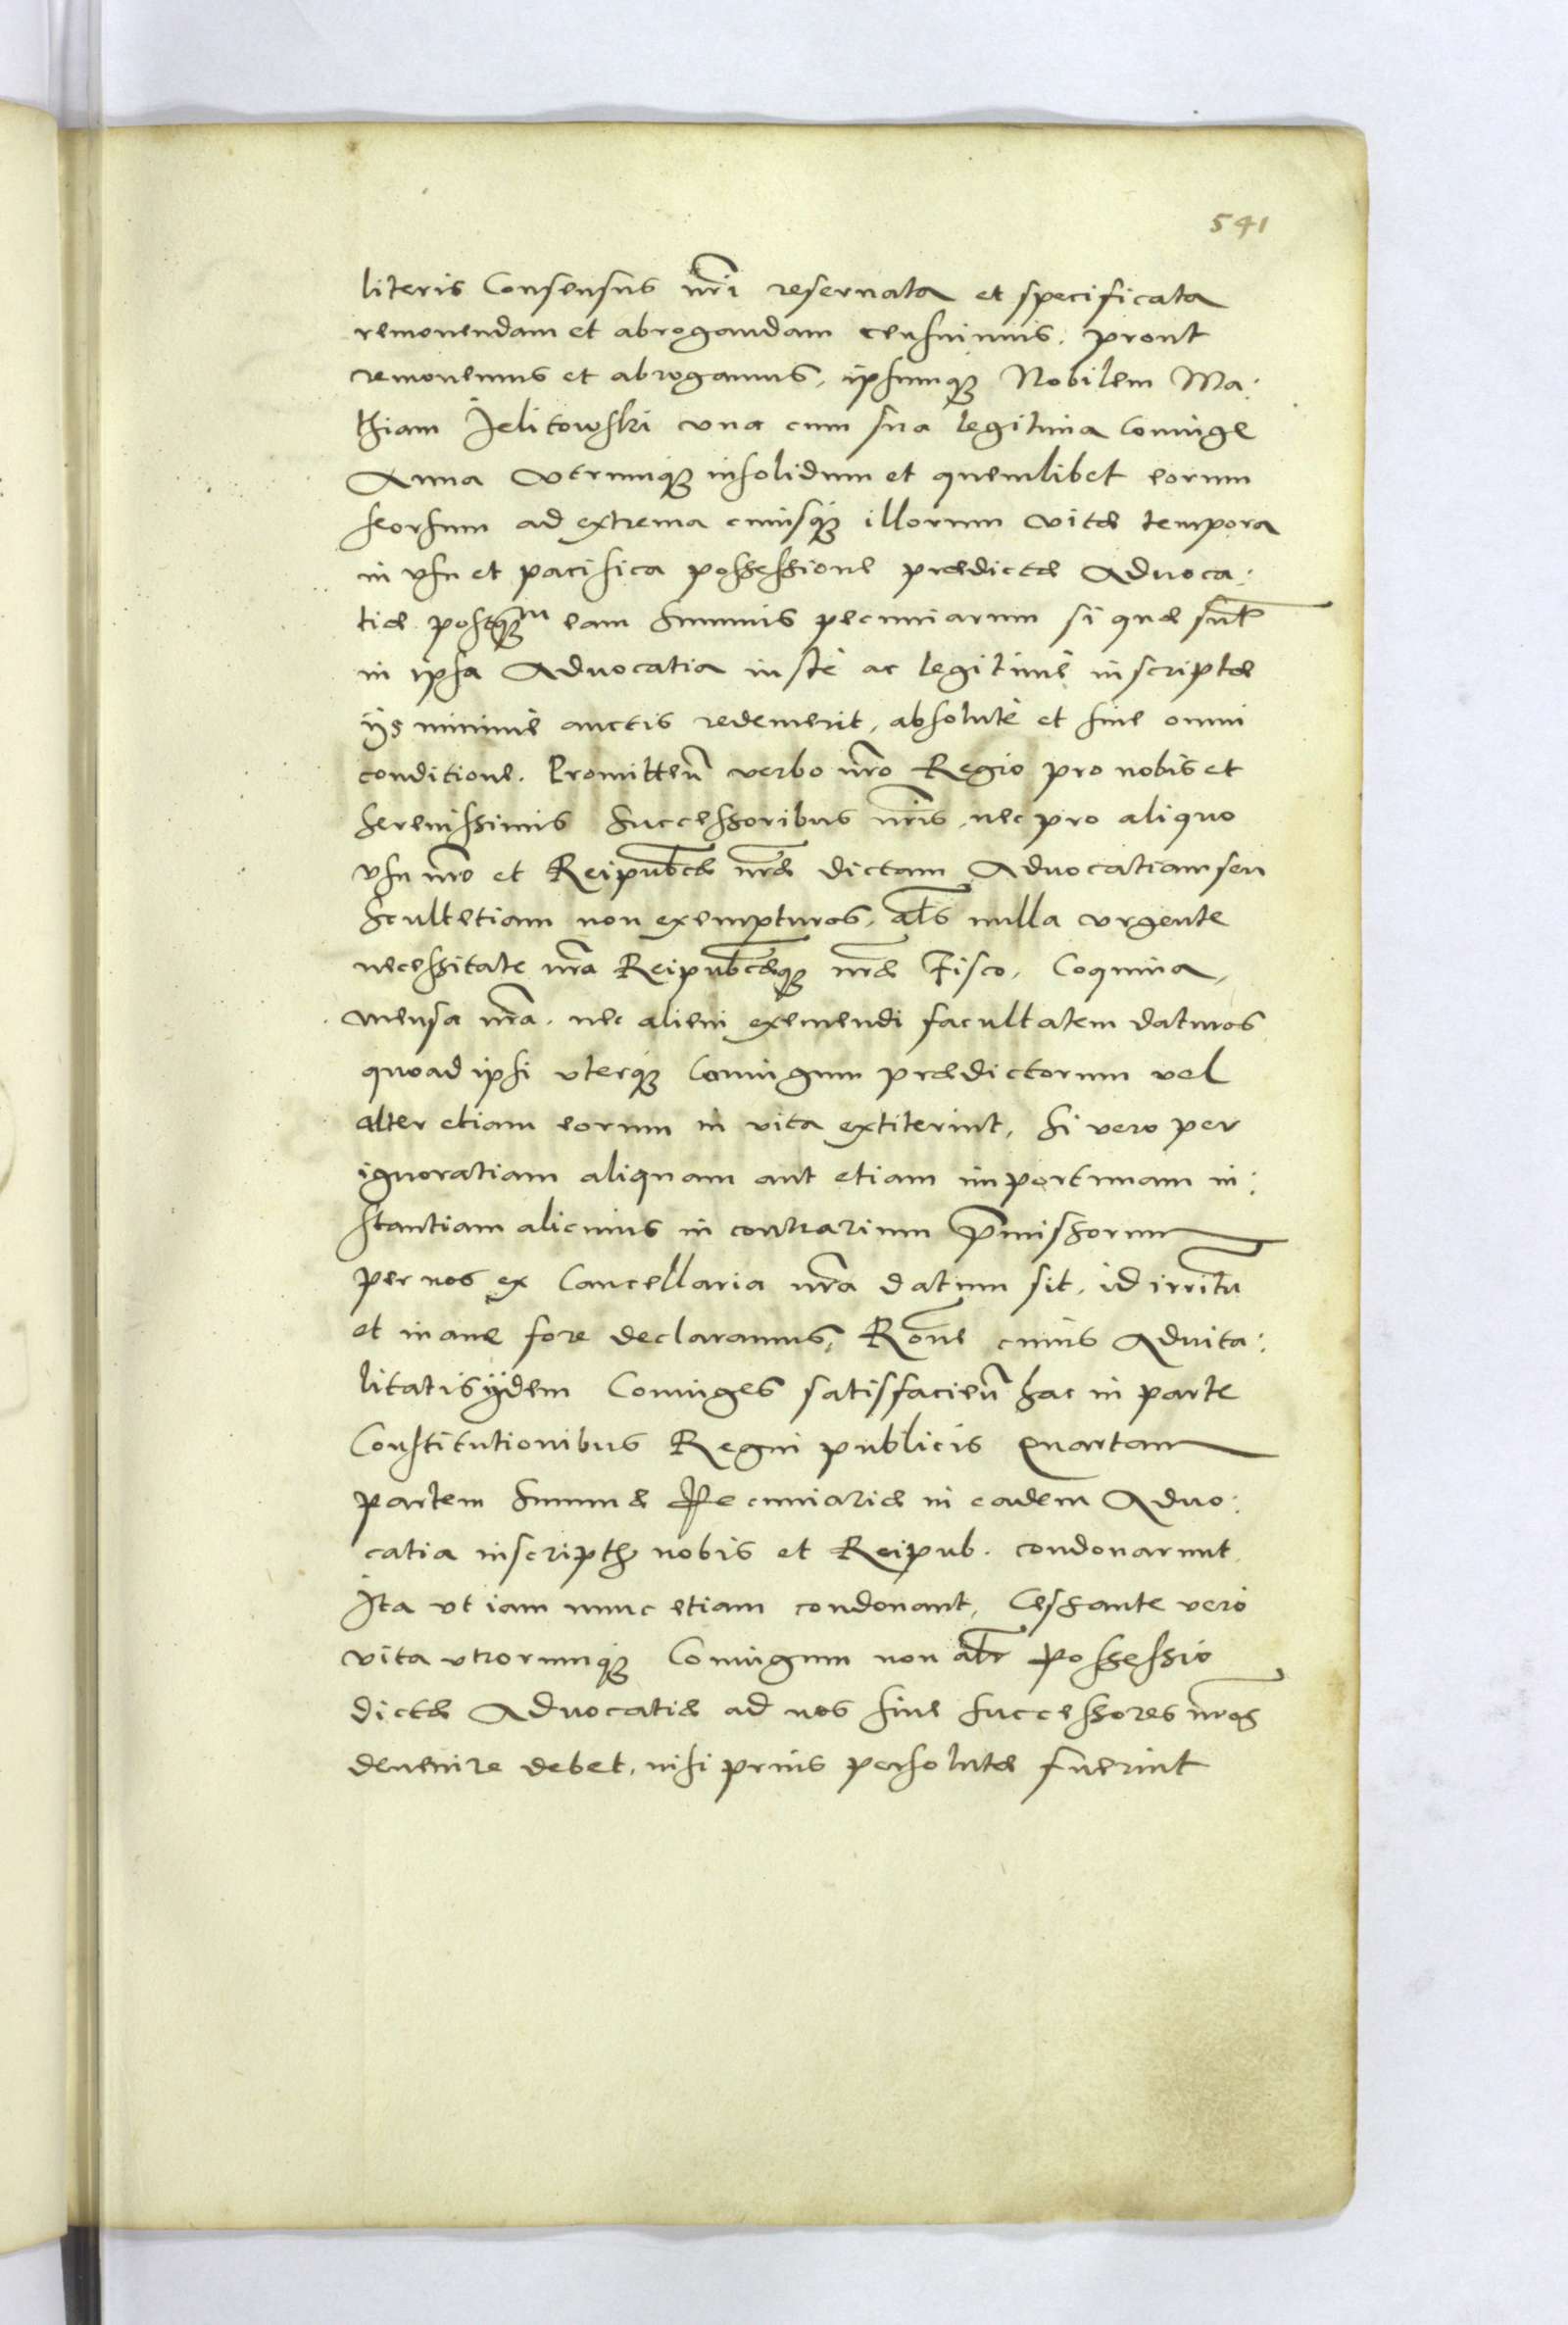 541
literis Consensus nr̃i reseruata et specificata
remouendam et abrogandam censuimus. prout
remouemus et abrogamus, ipsumqȝ Nobilem Ma:
thiam Jelitowski vna cum sua legitima Coniuge
Anna vtrumqȝ insolidum et quemlibet eorum
seorsum ad extrema cuiusqȝ illorum vitæ tempora
in vsu et pacifica possessione prædictæ Aduoca:
tiæ postqȝm eam summis pecuniarum si quæ sunt
in ipsa Aduocatia iustè ac legitimè inscriptæ
ijs minimè auctis redemerit, absolutè et sine omni
conditione. Promitteñ verbo nr̃o Regio pro nobis et
serenissimis successoribus nr̃is, nec pro aliquo
vsu nr̃o et Reipub̃cæ nr̃æ dictam Aduocatiam seu
scultetiam non exempturos, al̃s nulla vrgente
necessitate nr̃a Reipub̃cæqȝ nr̃æ Fisco, Coquina,
mensa nr̃a, nec alieni exemendi facultatem daturos
quoad ipsi vterqȝ Coniugum prædictorum vel
alter etiam eorum in vita extiterint, Si vero per
ignoratiam aliquam aut etiam importunam in:
stantiam alicuius in contrarium p̃missorum
per nos ex Cancellaria nr̃a datum sit, id irritũ
et inane fore declaramus, Rõne cuius Aduita:
litatis ijdem Coniuges satisfacieñ hac in parte
Constitutionibus Regni publicis quartam
partem summæ Pecuniariæ in eadem Aduo:
catia inscriptæ nobis et Reipub. condonarunt
Ita vt iam nunc etiam condonant, Cessante verò
vita vtrorumqȝ Coniugum non al̃r possessio
dictæ Aduocatiæ ad nos siue successores nr̃os
deuenire debet, nisi prius persolutæ fuerint